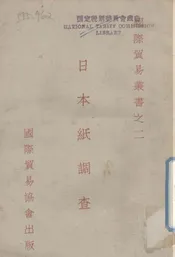 NATIONAL TARIFF COMMISSION
LIBRARY
國際貿易叢書之二
日本紙調查
國際貿易協會出版